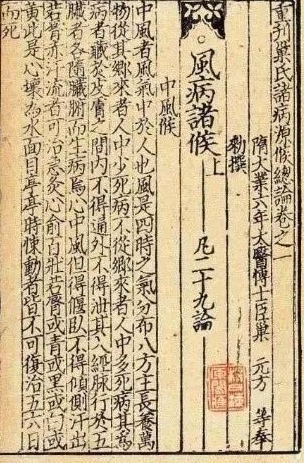 重刊巢氏諸病源候總論卷之一
隋大業六年太醫博士臣巢 元方 等奉
勅撰
風病諸候上 凡二十九論
中風候
中風者風氣中於人也風是四時之氣分布八方主長養萬
物從其鄉來者人中少死病不從鄉來者人中多死病其為
病者藏於皮膚之間內不得通外不得泄其入經脈行於五
臟者各隨臟腑而生病焉心中風但得偃臥不得傾側汗出
若唇赤汗流者可治急灸心俞百壯若唇或青或黑或白或
黃此是心壞為水面目亭亭時悚動者皆不可復治五六日
而死